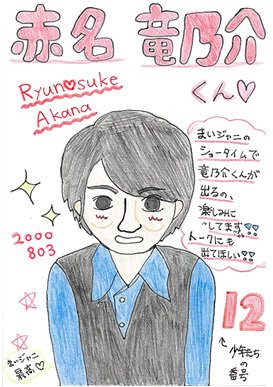 赤名 竜乃介
くん♡
Ryun♡suke
Akana
まいジャニの
ショータイムで
竜乃介くんが
出るの、
楽しみに
してます!!
トークにも
出てほしい!!
2000
803
12
↑
少年たち
の
番号
まいジャニ
最高♡